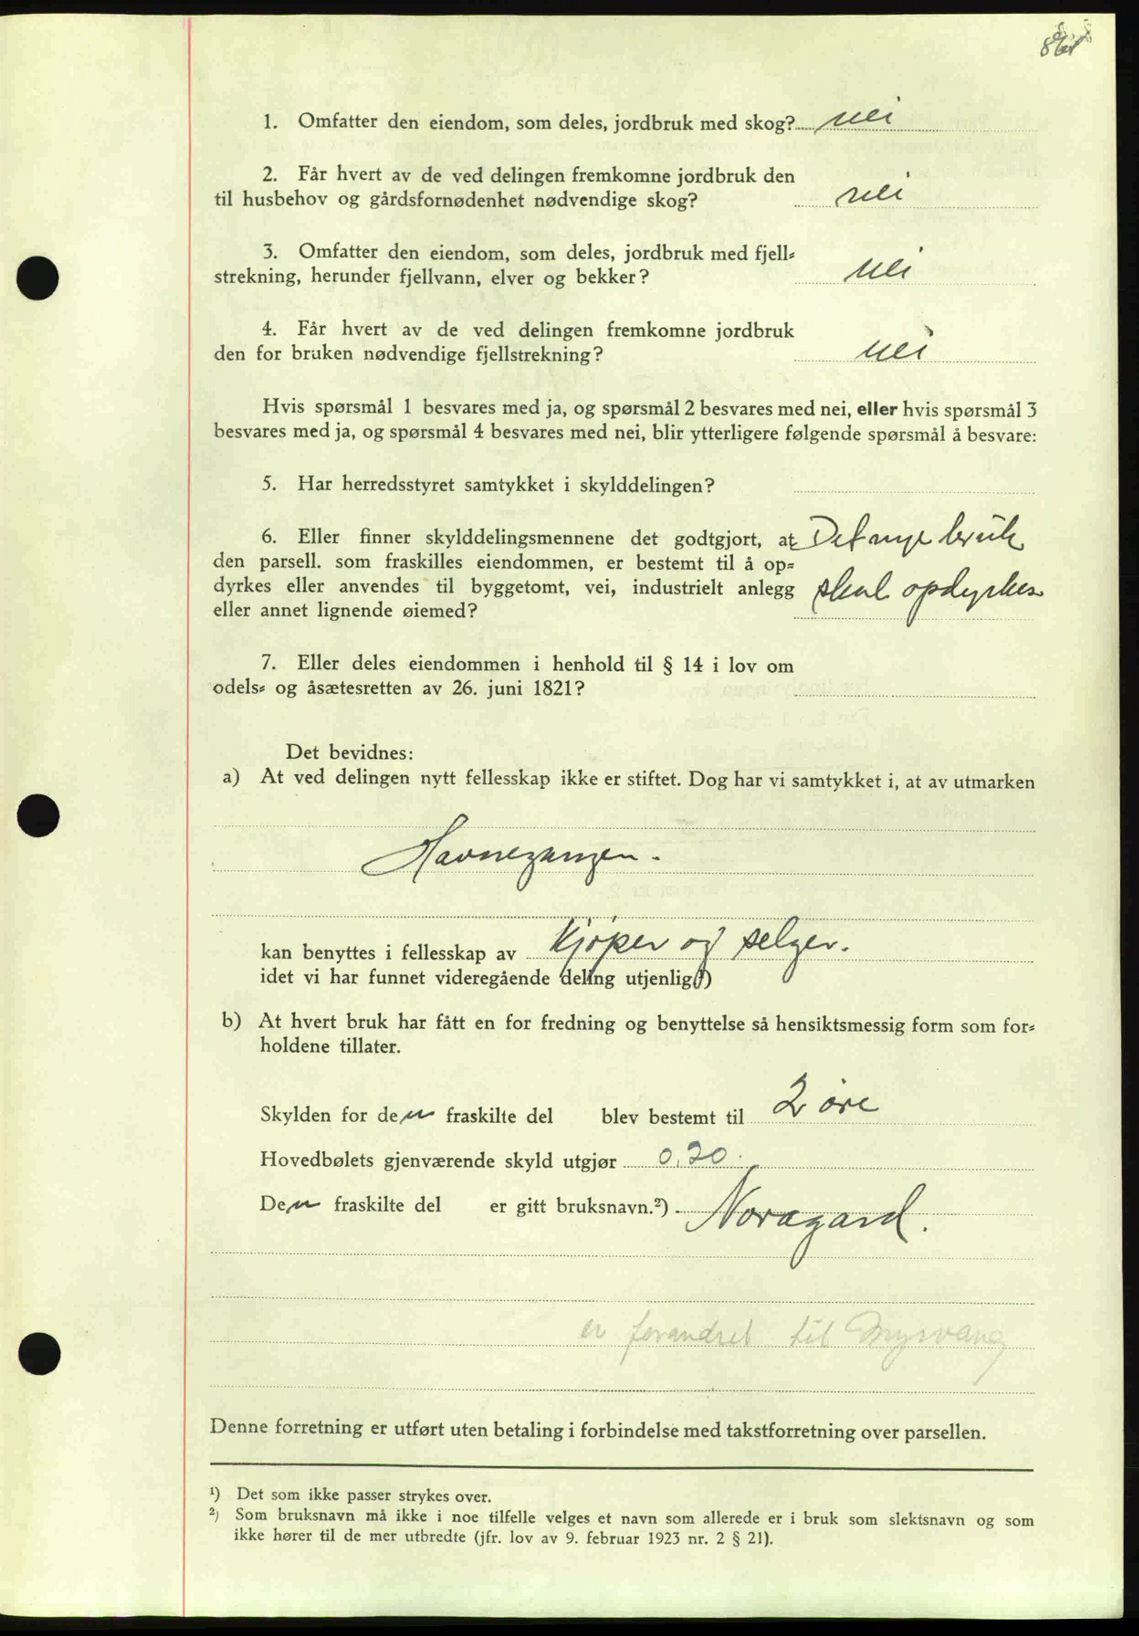 861
1. Omfatter den eiendom, som deles, jordbruk med skog? nei
2. Får hvert av de ved delingen fremkomne jordbruk den
til husbehov og gårdsfornødenhet nødvendige skog? nei
3. Omfatter den eiendom, som deles, jordbruk med fjell-
strekning, herunder fjellvann, elver og bekker? nei
4. Får hvert av de ved delingen fremkomne jordbruk
den for bruken nødvendige fjellstrekning? nei
Hvis spørsmål 1 besvares med ja, og spørsmål 2 besvares med nei, eller hvis spørsmål 3
besvares med ja, og spørsmål 4 besvares med nei, blir ytterligere følgende spørsmål å besvare:
5. Har herredsstyret samtykket i skylddelingen?
6. Eller finner skylddelingsmennene det godtgjort, at Det nye bruk
den parsell. som fraskilles eiendommen, er bestemt til å op-
dyrkes eller anvendes til byggetomt, vei, industrielt anlegg skal opdyrkes
eller annet lignende øiemed?
7. Eller deles eiendommen i henhold til § 14 i lov om
odels- og åsætesretten av 26. juni 1821?
Det bevidnes:
a) At ved delingen nytt fellesskap ikke er stiftet. Dog har vi samtykket i, at av utmarken
Havnegangen.
kan benyttes i fellesskap av kjøper og selger.
idet vi har funnet videregående deling utjenlig.¹)
b) At hvert bruk har fått en for fredning og benyttelse så hensiktsmessig form som for-
holdene tillater.
Skylden for den fraskilte del blev bestemt til 2 øre
Hovedbølets gjenværende skyld utgjør 0,20.
Den fraskilte del er gitt bruksnavn.²) Noragard.
er forandret til Myrvang
Denne forretning er utført uten betaling i forbindelse med takstforretning over parsellen.
¹) Det som ikke passer strykes over.
²) Som bruksnavn må ikke i noe tilfelle velges et navn som allerede er i bruk som slektsnavn og som
ikke hører til de mer utbredte (jfr. lov av 9. februar 1923 nr. 2 § 21).